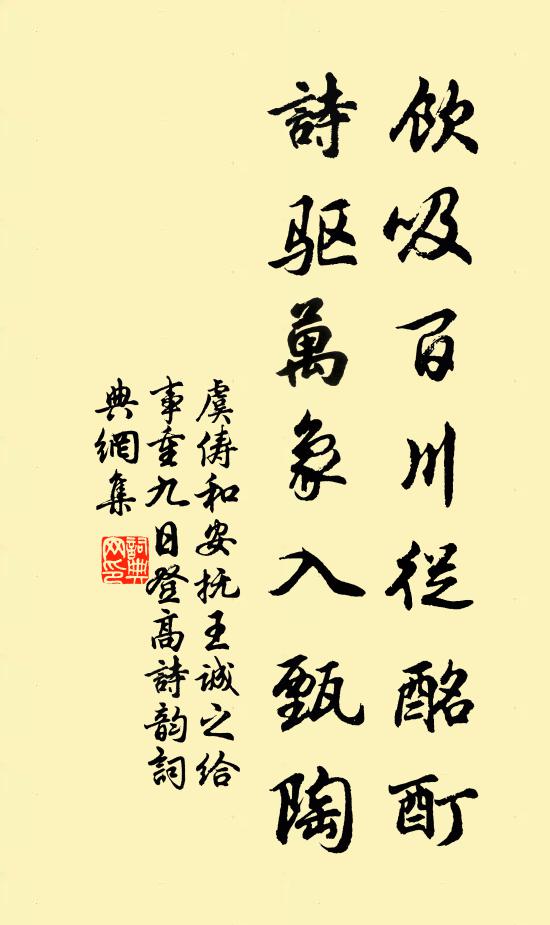 飲吸百川從酩酊
詩驱萬象入甄陶
虞儔和安抚王诚之给
事重九日登高詩韵詞
典網集
詞典
网印